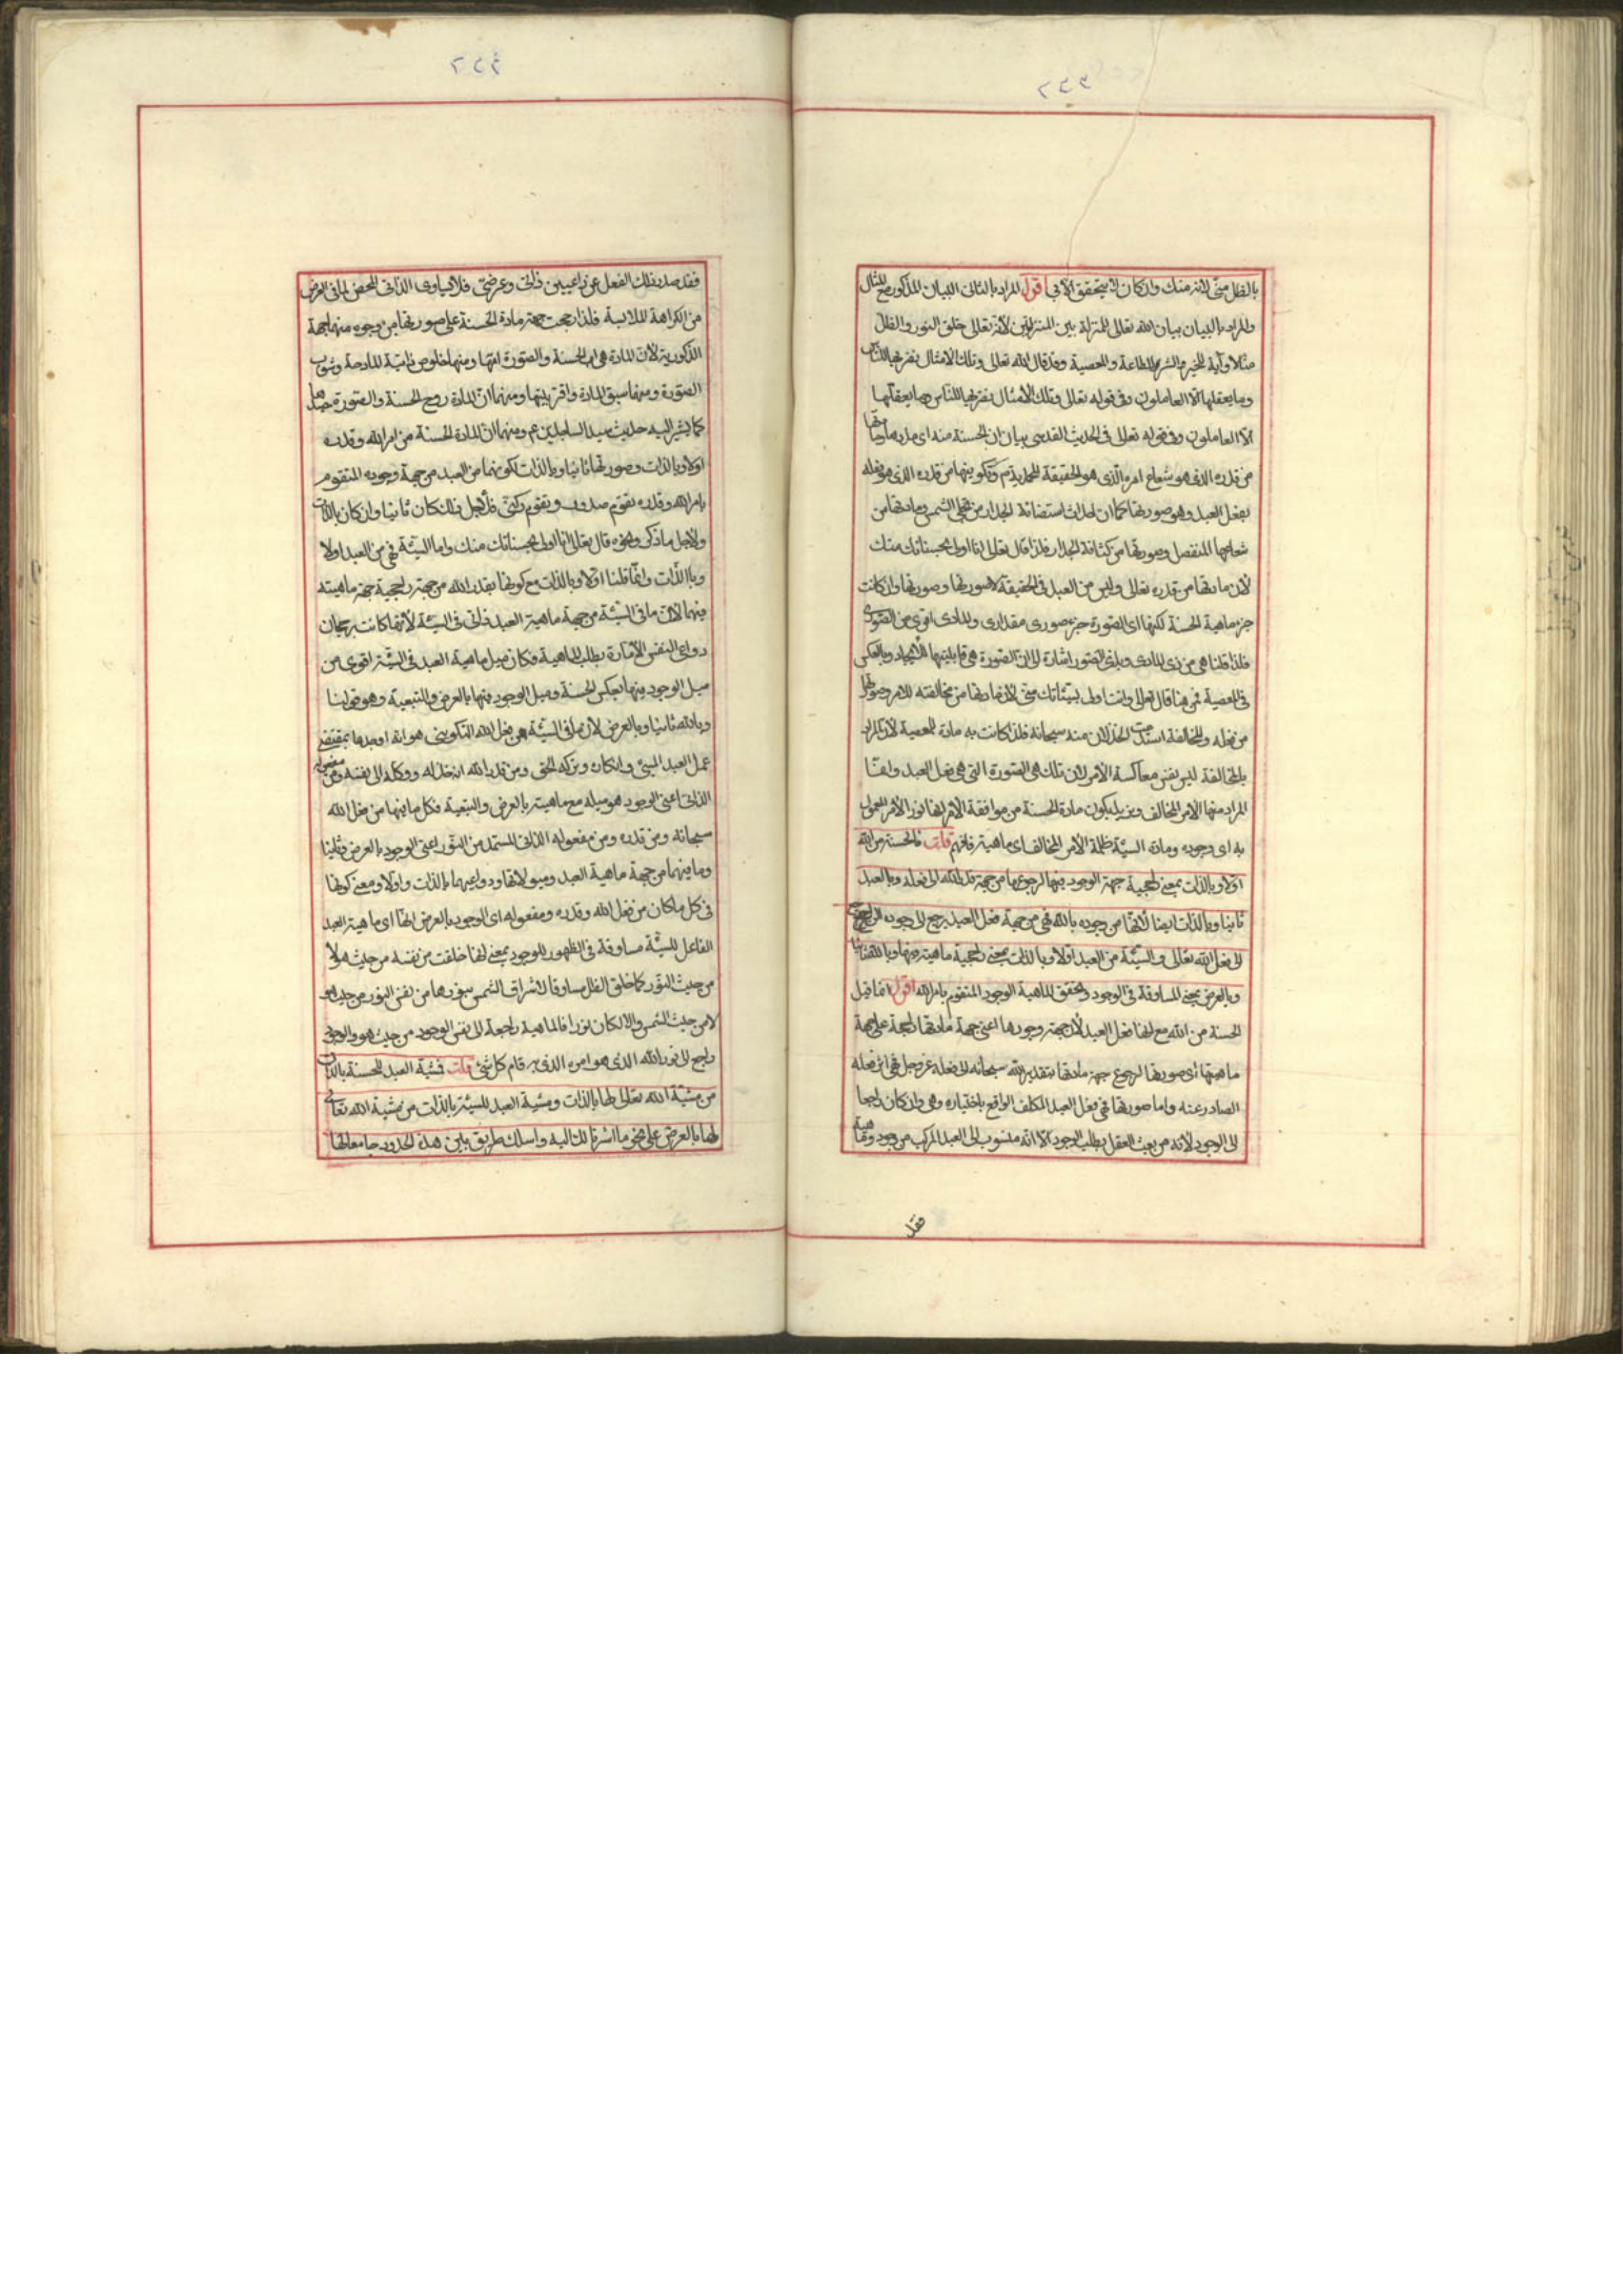 ٢٤٣
بالظل منى لانه منك وان كان لا يتحقق الا بى اقول المراد بالثالث البيان المذكور مع المثال
والمراد بالبيان بيان الله تعالى للمنزلة بين المنزلتين لأنه تعالى خلق النور والظل
مثلا وآية للخير والشر والطاعة والمعصية وقد قال الله تعالى وتلك الامثال نضربها للناس
وما يعقلها الا العاملون وفى قوله تعالى وتلك الامثال نضربها للناس وما يعقلها
الا العاملون وفى قوله تعالى فى الحديث القدسى بيان ان الحسنة منه اى مادتها
من قدره الذى هو شعاع امره الذى هو الحقيقة المحمدية وتكوينها من قدره الذى هو فعله
بفعل العبد وهو صورتها كما ان احداث استضائة الجدار من تجلى الشمس ومادتها من
شعاعها المنفصل وصورتها من كثافة الجدار فلذا قال تعالى انا اولى بحسناتك منك
لان مادتها من قدره تعالى وليس من العبد فى الحقيقة الا صورتها وصورتها وان كانت
جزء ماهية الحسنة لكنها اى الصورة جزء صورى مقدارى والمادى اقوى من الصورى
فلذا قلنا هى من ذى المادى وبلغى الصور اشارة الى ان الصورة هى قابليتها للايجاد وبالعكس
فى المعصية فمن هنا قال تعالى وانت اولى بسيئاتك منى لان مادتها من مخالفته للامر وصورتها
من فعله والمخالفة استندت الخذلان منه سبحانه فلذا كانت به مادة المعصية لان المراد
بالمخالفة ليس نفس معاكسة الامر لان تلك هى الصورة التى هى فعل العبد وانما
المراد منها الامر المخالف وبذلك يكون مادة الحسنة من موافقة الامر لانها نور الأمر المعمول
به اى وجوده ومادة السيئة ظلمة الأمر المخالف اى ماهيته فافهم قلت فالحسنة من الله
اولا وبالذات بمعنى راجحية جهة الوجود فيها لرجوعها من جهة قدر الله الى فعله وبالعبد
ثانيا وبالذات ايضا لأنها من وجوده بالله فهى من جهة فعل العبد يرجع الى وجوده الراجح
الى فعل الله تعالى والسيئة من العبد اولا وبالذات بمعنى راجحية ماهيته فيها وبالله ثانيا
وبالعرض بمعنى المساوقة فى الوجود وتحقق الماهية الوجود المتقوم بامر الله اقول انما قيل
الحسنة من الله مع انها فعل العبد لأن جهة وجودها اعنى جهة مادتها راجحة على جهة
ماهيتها اى صورتها لرجوع جهة مادتها بتقدير الله سبحانه الى فعله عز وجل فهى اثر فعله
الصادر عنه واما صورتها فهى فعل العبد المكلف الواقع باختياره وهى وان كان راجعا
الى الوجود لأنه من بعث العقل بطلب الوجود الا انه منسوب الى العبد المركب من وجود وماهية
فقد
٢٤٤
فقد صدر ذلك الفعل عن داعيين ذاتى وعرضى فلا يساوى الذاتى المحض لما فى العرض
من الكراهة الملابسة فلذا رجحت جهة مادة الحسنة على صورتها من وجوه منها جهة
الذكورية لان المادة هى اب الحسنة والصورة امها ومنها خلوص ذاتية المادة وشوب
الصورة ومنها سبق المادة واقربيتها ومنها ان المادة روح الحسنة والصورة جسدها
كما يشير اليه حديث سيد الساجدين ع ومنها ان المادة الحسنة من امر الله وقدره
اولا وبالذات وصورتها ثانيا وبالذات لكونها من العبد من جهة وجوده المتقوم
بامر الله وقدره تقوم صدور وتقوم ركنى فلأجل ذلك كان ثانيا وان كان بالذات
ولأجل ما ذكر ونحوه قال تعالى انا اولى بحسناتك منك واما السيئة فهى من العبد اولا
وبالذات وانما قلنا اولا وبالذات مع كونها بقدر الله من جهة راجحية جهة ماهيته
فيها لان ما فى السيئة من جهة ماهية العبد ذاتى فى السيئة لأنها كانت برجحان
دواعى النفس الأمارة بطلب الماهية فكان ميل ماهية العبد فى السيئة اقوى من
ميل الوجود فيها بعكس الحسنة وميل الوجود فيها بالعرض والتبعية وهو قولنا
وبالله ثانيا وبالعرض لان ما فى السيئة من فعل الله التكوينى هو انه اوجدها بمقتضى
عمل العبد المسئ وانكاره وتركه الحق ومن قدر الله ان خذله ووكله الى نفسه ومن مفعوله
الذاتى اعنى الوجود هو ميله مع ماهيته بالعرض والتبعية فكل ما فيها من فعل الله
سبحانه ومن قدره ومن مفعوله الذاتى المستمد من النور اعنى الوجود بالعرض وثانيا
وما فيها من جهة ماهية العبد وميولاتها ودواعيها بالذات واولا ومعنى كونها
فى كل ما كان من فعل الله وقدره ومفعوله اى الوجود بالعرض انها اى ماهية العبد
الفاعل للسيئة مساوقة فى الظهور للوجود بمعنى انها خلقت من نفسه من حيث هو لا
من حيث النور كما خلق الظل مساوقا لاشراق الشمس بنورها من نفس النور من حيث هو
لا من حيث الشمس والا لكان نورا فالماهية راجعة الى نفس الوجود من حيث هو والوجود
راجع الى نور الله الذى هو امره الذى به قام كل شئ قلت فمشية العبد للحسنة بالذات
من مشية الله تعالى لها بالذات ومشية العبد للسيئة بالذات من مشية الله تعالى
لها بالعرض على نحو ما اشرنا لك اليه واسلك طريق بين هذه الحدود جامعا لها